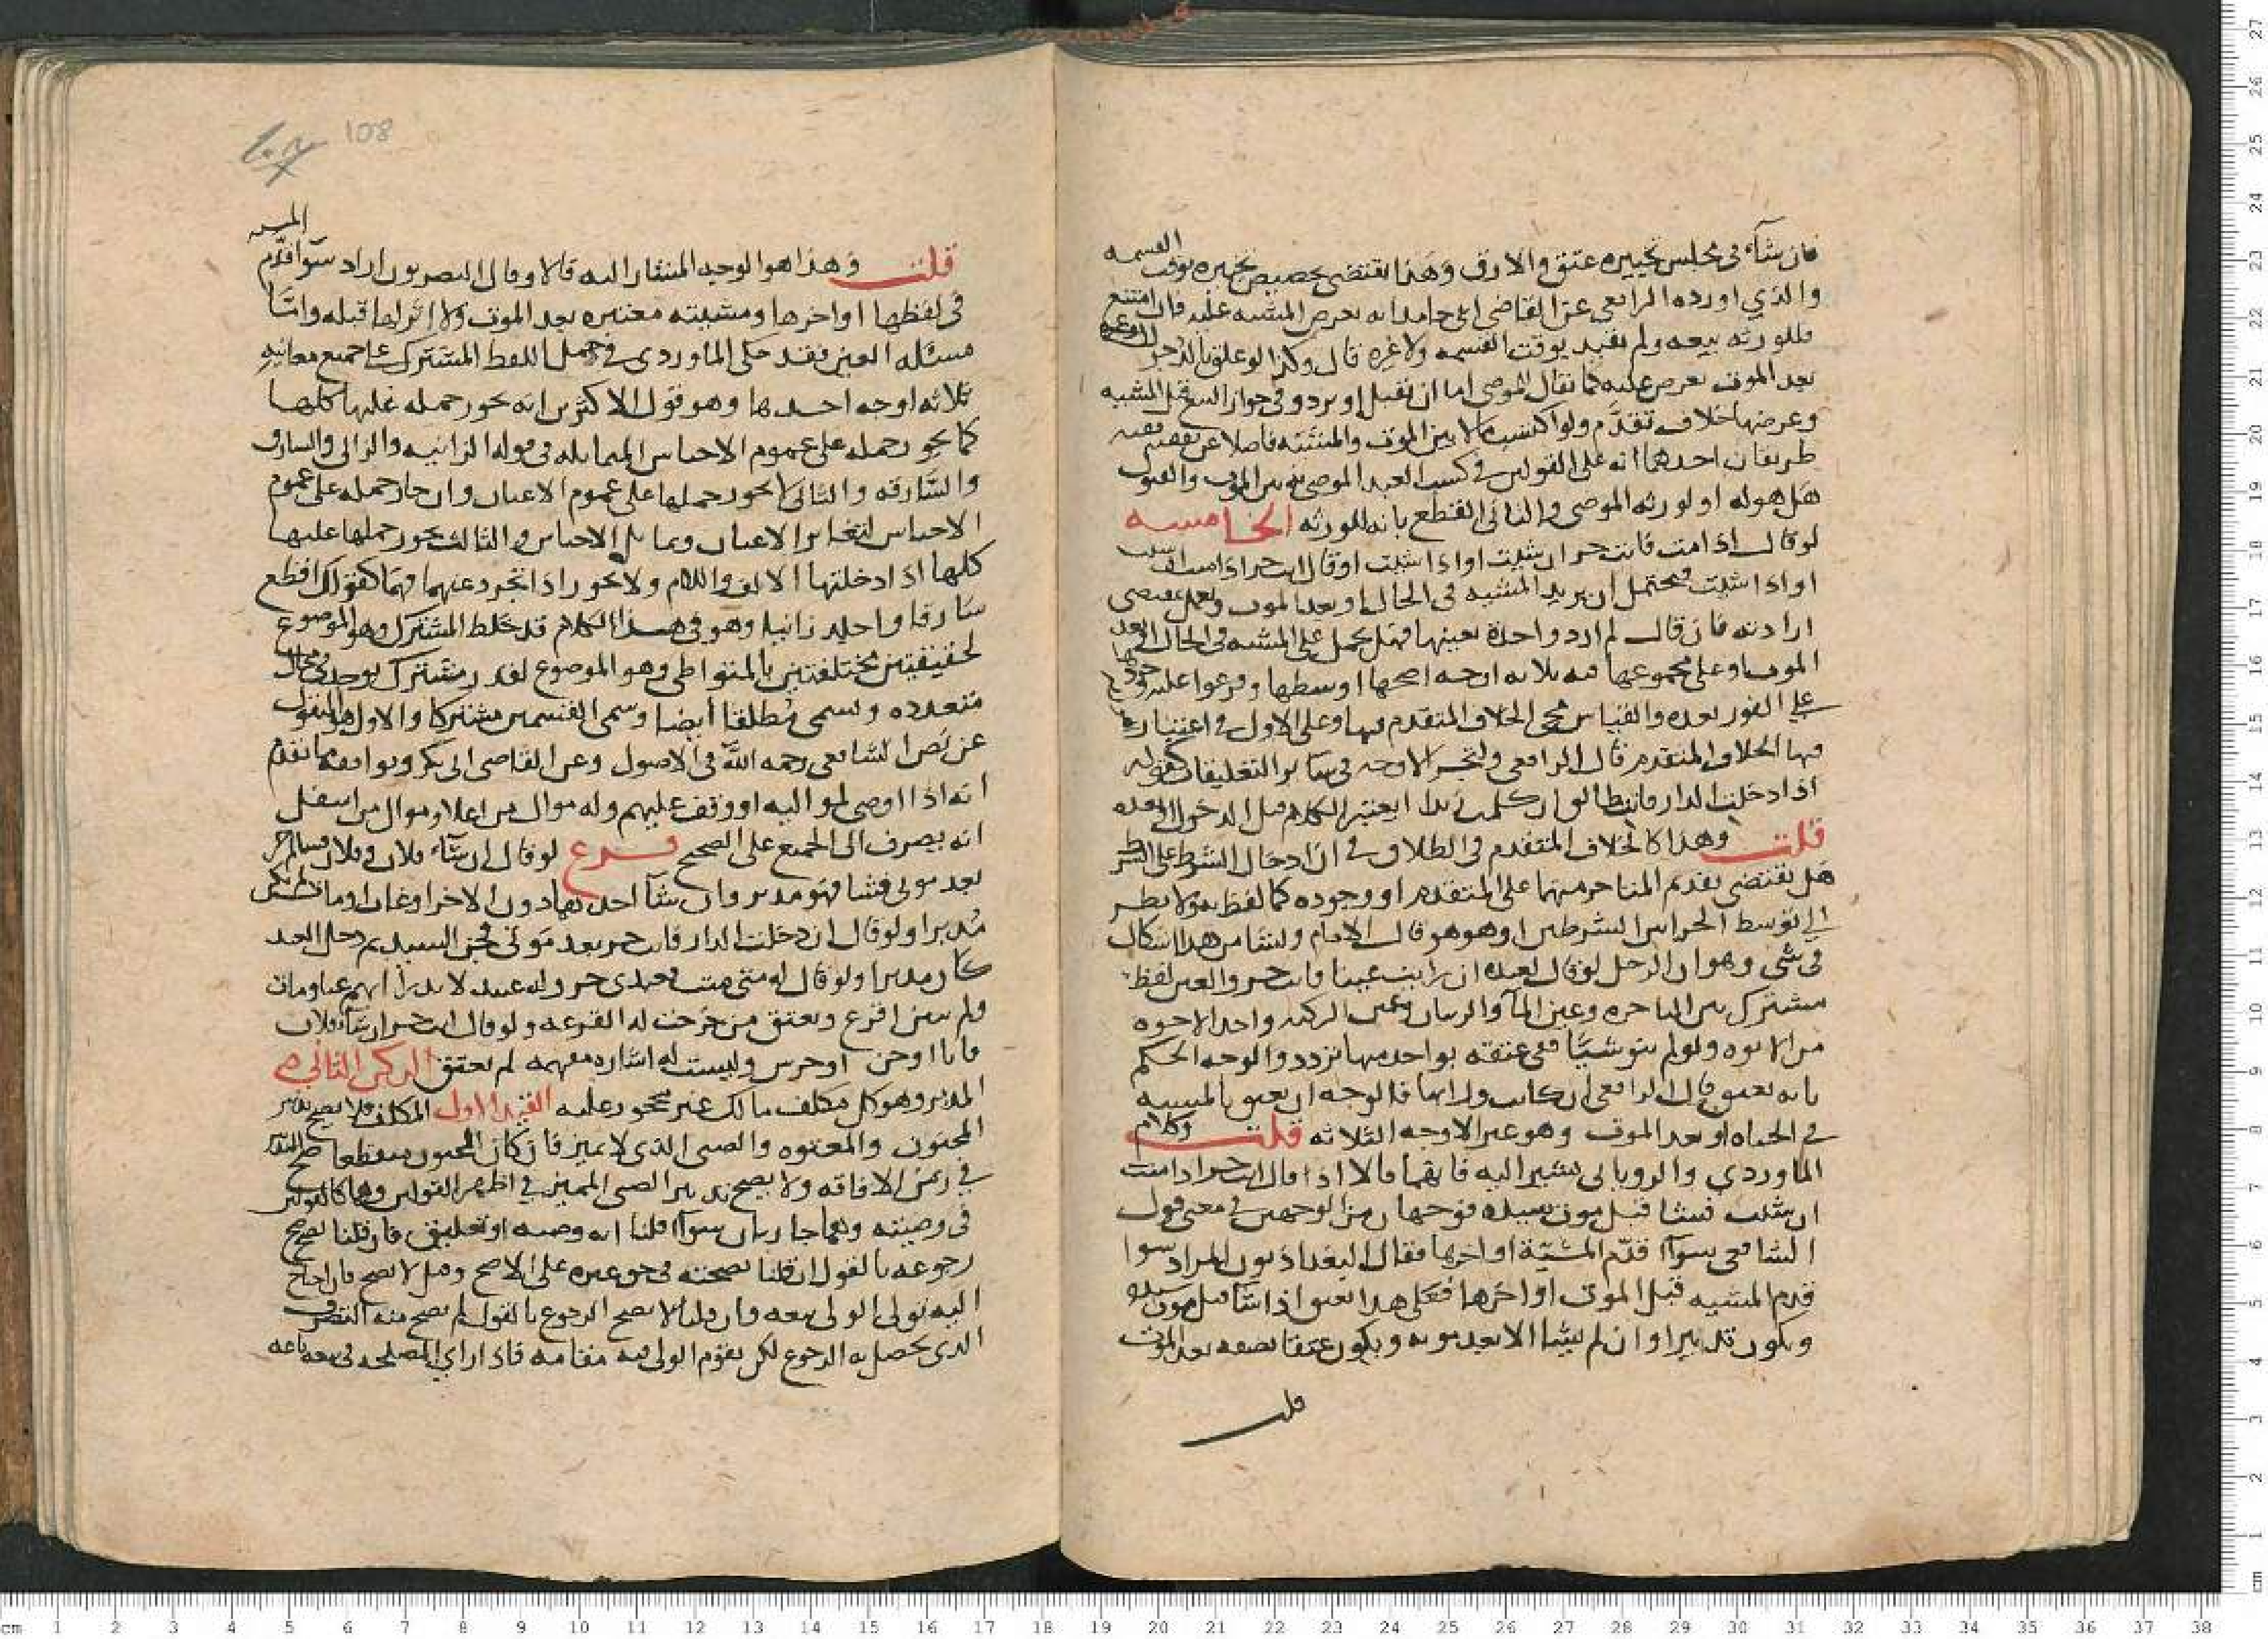 فان شآء في مجلس تخييره عتق والا رق وهذا يقتضي تخصيص تخييره بوقت القسمه
والذي اورده الرافعي عن القاضي ابي حامد انه تعرض المشيه عليه فان امتنع
فللورثه بيعه ولم تقيد بوقت القسمه ولا غيره قال وكذا لو علق بالدخول
بعد الموت تعرض عليه كما يقال للموصى اما ان تقبل او ترد وفي جواز البيع قبل المشيه
وعرضها خلاف تقدم ولو اكتسب مالا بين الموت والمشيئه فاصلا عن نفقته ففيه
طريقان احدهما انه على القولين في كسب العبد الموصى به بين الموت والقبول
هل هو له او لورثه الموصي والثاني القطع بانه للورثه الخامسه
لو قال اذا مت فانت حر ان شئت او اذا شئت او قال انت حر اذا مت ان شئت
او اذا شئت فيحتمل ان يريد المشيه في الحال او بعد الموت ويعمل بمقتضى
ارادته فان قال لم ارد واحدة بعينها فهل يحمل على المشيه في الحال او بعد
الموت او على مجموعهما فيه ثلاثه اوجه اصحها اوسطها وفرعوا عليه
على الفور بعده والقياس مجي الخلاف المتقدم فيها وعلى الاول في اعتبار
فيها الخلاف المتقدم قال الرافعي ولتجر الاوجه في سائر التعليقات كقوله
اذا دخلت الدار فانت طالق ان كلمت زيدا ايعتبر الكلام قبل الدخول او بعده
قلت وهذا كالخلاف المتقدم في الطلاق في ان ادخال الشرط على الشرط
هل يقتضي تقدم المتاخر منهما على المتقدم او وجوده كما لفظ به ولا نظر
الى توسط الجزاء بين الشرطين او هو هو قال الامام ولينشا من هذا اشكال
في شي وهو ان الرجل لو قال لعبده ان رايت عينا فانت حر والعين لفظ
مشترك بين الباصره وعين المآ والدينار وعين الركبه واحد الاخوه
من الابوه ولو لم ينو شيئا ففي عتقه بواحد منها تردد والوجه الحكم
بانه يعتق قال الرافعي ان كانت ولدانها فالوجه ان يعتق بالمشيه
في الحياه او بعد الموت وهو غير الاوجه الثلاثه قلت وكلام
الماوردي والروياني يشير اليه فانهما قالا اذا قال انت حر اذا مت
ان شئت فشا قبل موت سيده فوجهان من الوجهين في معنى قول
الشافعي سوآ قدم المشيّة او اخرها فقال البغداذيون المراد سوا
قدم المشيه قبل الموت او اخرها فعلى هذا يعتق اذا شا قبل موت سيده
ويكون تدبيرا وان لم يشا الا بعد موته ويكون عتقا بصفه بعد الموت
قلت
108
١٠٨
قلت وهذا هو الوجه المشار اليه قالا وقال البصريون اراد سوآ قدّم المشيه
في لفظها او اخرها ومشيته معتبره بعد الموت ولا اثر لها قبله وامّا
مسئله العين فقد حكى الماوردي في حمل اللفظ المشترك على جميع معانيه
ثلاثه اوجه احدها وهو قول الاكثرين انه يجوز حمله عليها كلها
كما يجوز حمله على عموم الاجناس المتماثله في قوله الزانيه والزاني والسارق
والسّارقه والثاني لا يجوز حملها على عموم الاعيان وان جاز حمله على عموم
الاجناس لتغاير الاعيان وتماثل الاجناس والثالث يجوز حملها عليها
كلها اذا دخلتها الالف واللام ولا يجوز اذا تجرد عنهما فهما كقولك اقطع
سارقا واجلد زانيا وهو في هذا الكلام قد خلط المشترك وهو الموضوع
لحقيقتين مختلفتين بالمتواطي وهو الموضوع لقدر مشترك يوجد في محال
متعدده وسمي مطلقا ايضا وسمى القسمين مشتركا والاول هو المنقول
عن نص الشافعي رحمه الله في الاصول وعن القاضي ابي بكر ويوافقه ما تقدم
انه اذا اوصى لمواليه او وقف عليهم وله موال من اعلا وموال من اسفل
انه يصرف الى الجميع على الصحيح فرع لو قال ان شآء فلان وفلان فسالم حر
بعد موتي فشا فهو مدبر وان شآ احدهما دون الاخر او غابا او ماتا لم يكن
مدبرا ولو قال ان دخلت الدار فانت حر بعد موتي فجن السيد ثم دخل العبد
كان مدبرا ولو قال له متى مت فعبدي حر وله عبيد لا يدرا ايهم عنا ومات
ولم يبين اقرع ويعتق من خرجت له القرعه ولو قال انت حر ان شآء فلان
فابا او جن او خرس وليست له اشاره مفهمه لم يعتق الركن الثاني
المدبر وهو كل مكلف مالك غير محجور عليه القيد الاول المكلف فلا يصح تدبير
المجنون والمعتوه والصبي الذي لا يميز فان كان الجنون متقطعا صح التدبير
في زمن الافاقه ولا يصح تدبير الصبي المميز في اظهر القولين وهما كالقولين
في وصيته وهما جاريان سوآ قلنا انه وصيه او تعليق فان قلنا يصح صح
رجوعه بالقول ان قلنا بصحته في حق غيره على الاصح وهل لا يصح فان احتاج
اليه تولى الولي بيعه وان قلنا لا يصح الرجوع بالقول لم يصح منه التصرف
الذي يحصل به الرجوع لكن يقوم الولي فيه مقامه فاذا راي المصلحه في بيعه باعه